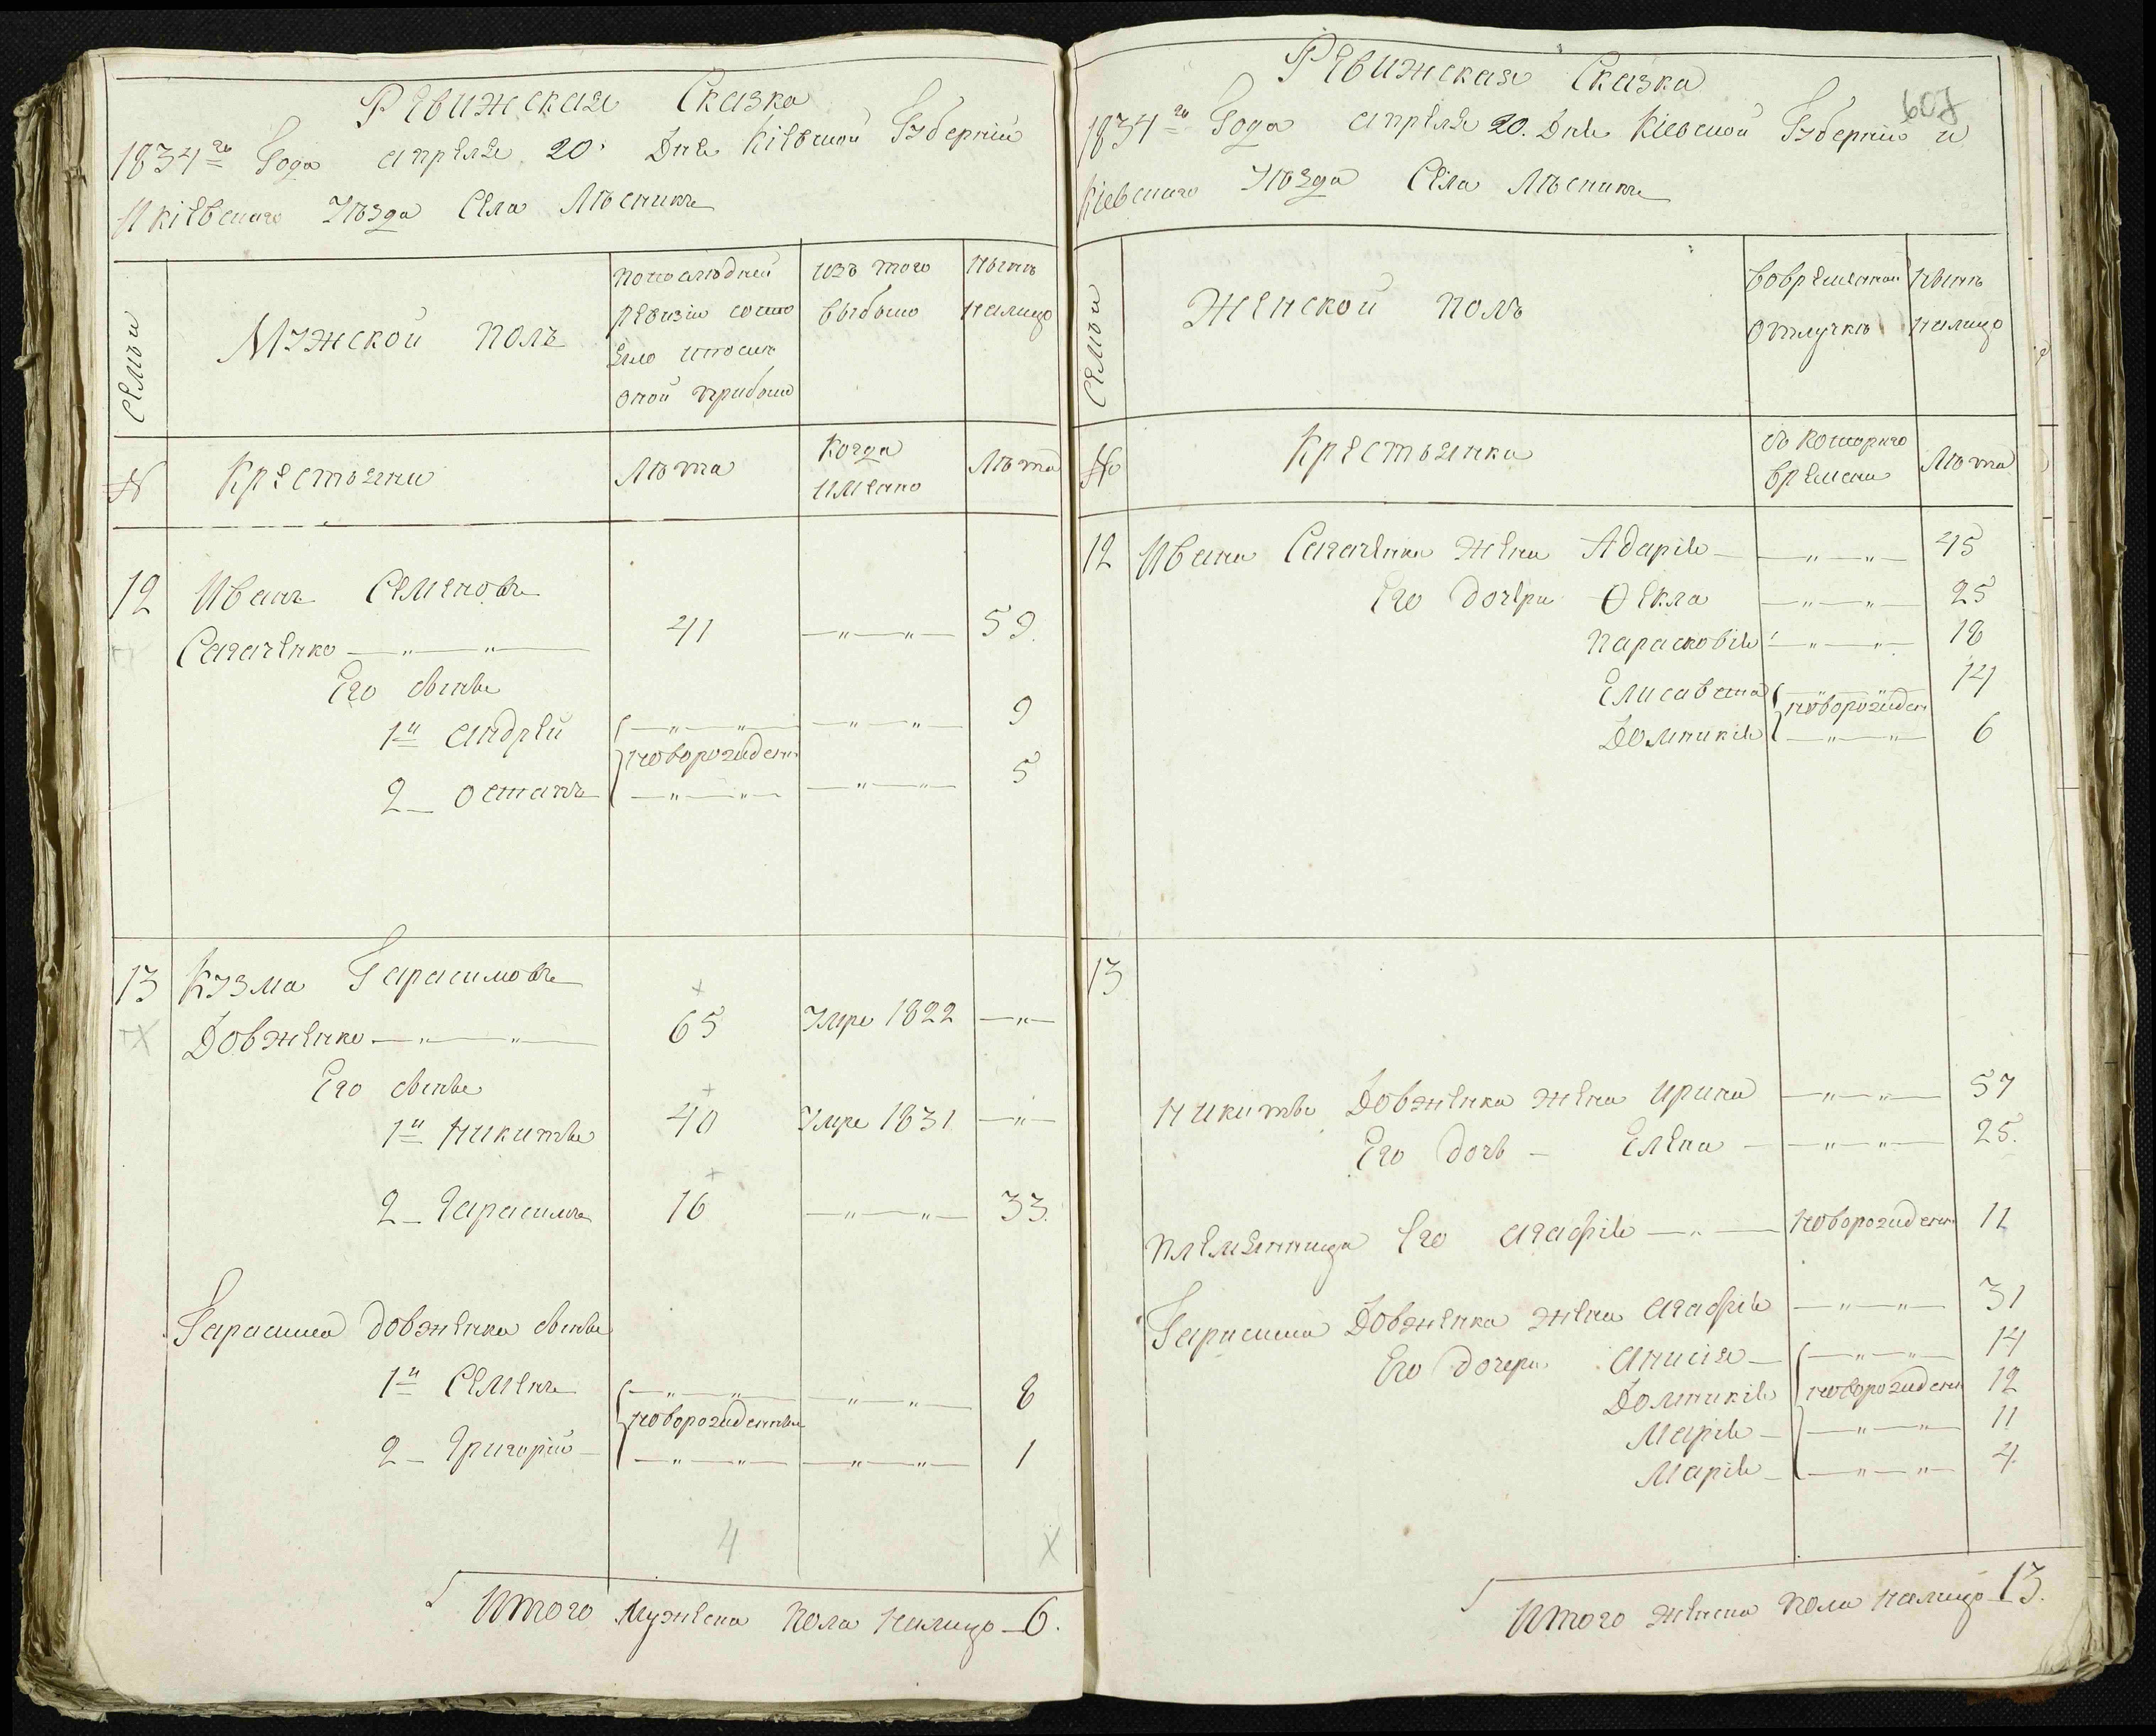 Ревижская Сказка
1834го Года апреля 20. Дня Кіевской Губерніи
И кіевского Уезда Села Лѣсникъ
Семьи
Мужской полъ
По последней
ревизіи состо
яло и после
оной прибыло
изъ того
выбыло
Нынѣ
налицо
№
Крестьяни
Лѣта
Когда
имянно
Лѣта
12
Иванъ Семеновъ
Сагаченко 41 59.
Его сыновья
1й андрей 9
новорожден
2 остапъ 5
13
Кузма Гарасимовъ
Довженко 65 Умре 1822
Его сыновья
1й Никита 40 Умре 1831
2 Гарасимъ 16 33.
Гарасима Довженка сыновья
1й Семенъ 8
новорожденны
2 Григорій 1
4
Итого мужеска пола налицо 6.
607
Ревижская Сказка
1834го Года апреля 20. Дня Кіевской Губерніи и
Кіевского Уѣзда Села Лѣсникъ
Семьи
Женской полъ
Вовременной
отлучкѣ
Нынѣ
налицо
№
Крестьянки
съ которого
времени
Лѣта
12 Ивана Сагаченка жена Адарія 45
Его дочери Ѳекла 25
Парасковія 18
Елисавета 14
новорожден
Домникія 6
13
Никиты Довженка жена Ирина 57
Его дочь Елена 25.
Племянница Его агафія новорожден 11
Гарасима Довженка жена агафія 31
Его дочери анисія 14
Домникія новорожден 12
Марія 11
Марія 4.
Итого женска пола налицо 13.